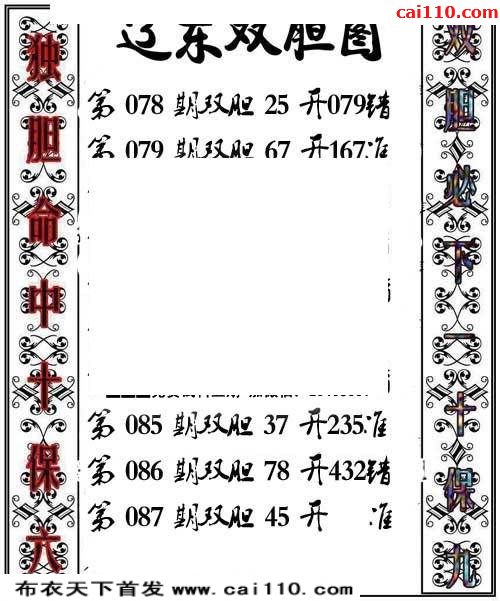 cai110.com
辽东双胆图
独胆命中十保六
双胆必下一十保九
第 078 期双胆 25 开079错
第 079 期双胆 67 开167准
第 085 期双胆 37 开235准
第 086 期双胆 78 开432错
第 087 期双胆 45 开 准
布衣天下首发 www.cai110.com